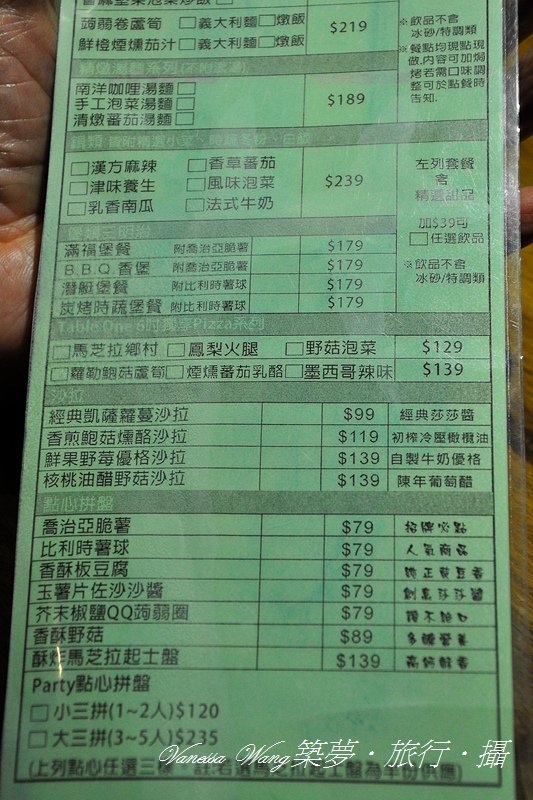 蒟蒻卷蘆筍 □義大利麵 □燉飯
鮮橙煙燻茄汁 □義大利麵 □燉飯
$219
※飲品不含
冰砂/特調類
※餐點均現點現
做.內容可加焗
烤若需口味調
整可於點餐時
告知.
南洋咖哩湯麵□
手工泡菜湯麵□
清燉蕃茄湯麵□
$189
□漢方麻辣 □香草蕃茄
□津味養生 □風味泡菜
□乳香南瓜 □法式牛奶
$239
左列套餐
含
精選甜品
加$39可
□任選飲品
※飲品不含
冰砂/特調類
滿福堡餐 附喬治亞脆薯 $179
B.B.Q.香堡 附喬治亞脆薯 $179
潛艇堡餐 附比利時薯球 $179
炭烤時蔬堡餐 附比利時薯球 $179
Table One 8吋獨享Pizza系列
□馬芝拉鄉村 □鳳梨火腿 □野菇泡菜 $129
□蘿勒鮑菇蘆筍 □煙燻蕃茄乳酪 □墨西哥辣味 $139
沙拉
經典凱薩蘿蔓沙拉 $99 經典莎莎醬
香煎鮑菇燻酪沙拉 $119 初榨冷壓橄欖油
鮮果野莓優格沙拉 $139 自製牛奶優格
核桃油醋野菇沙拉 $139 陳年葡萄醋
點心拼盤
喬治亞脆薯 $79 招牌必點
比利時薯球 $79 人氣商品
香酥板豆腐 $79 純正黃豆香
玉薯片佐沙沙醬 $79 創意莎莎醬
芥末椒鹽QQ蒟蒻圈 $79 讚不絕口
香酥野菇 $89 多醣營養
酥炸馬芝拉起士盤 $139 高鈣鮮香
Party點心拼盤
□小三拼(1~2人)$120
□大三拼(3~5人)$235
(上列點心任選三樣 註:若選馬芝拉起士盤為半份供應)
Vanessa Wang 築夢·旅行·攝